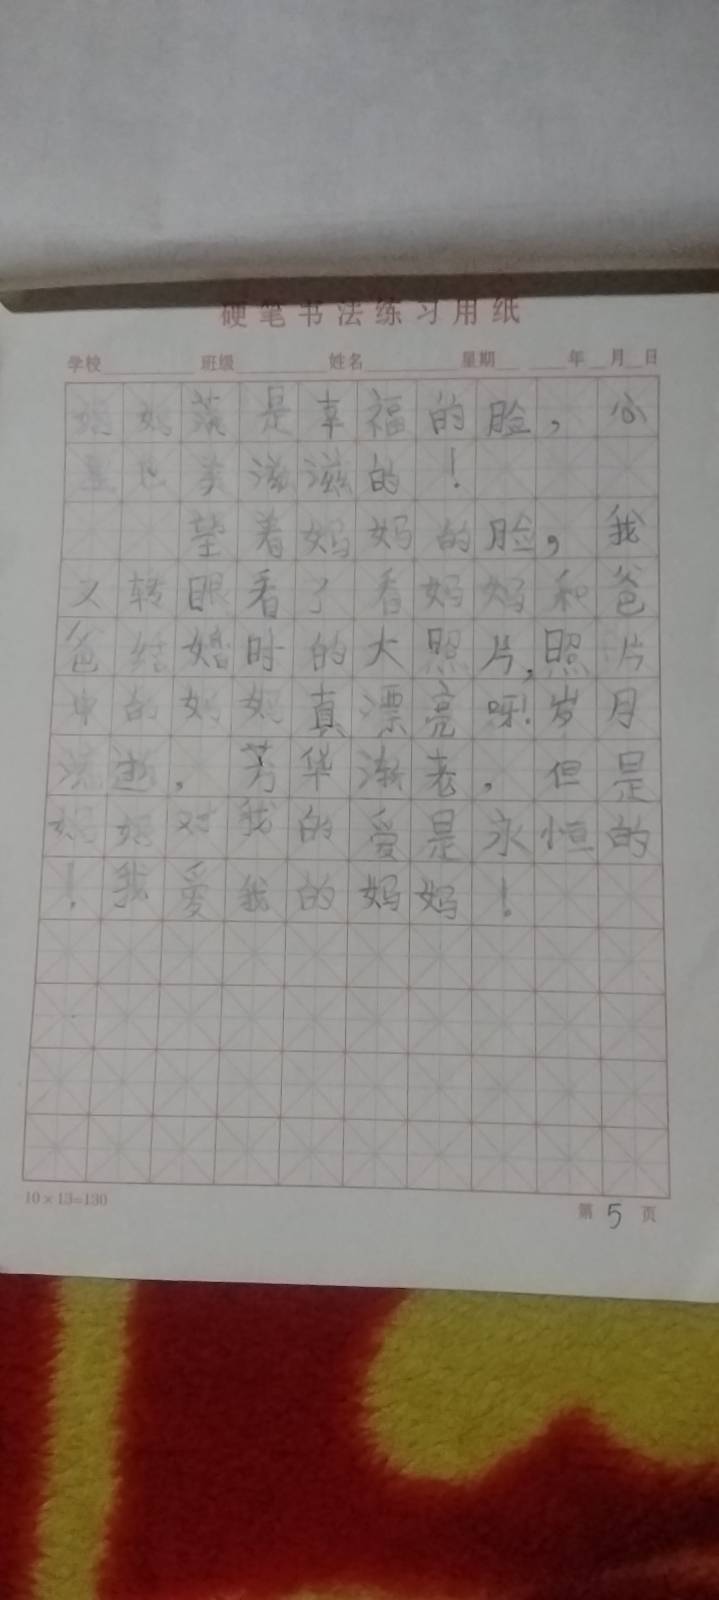 硬笔书法练习用纸
学校 班级 姓名 星期 年 月 日
妈妈满是幸福的脸，心
里也美滋滋的！
望着妈妈的脸，我
又转眼看了看妈妈和爸
爸结婚时的大照片，照片
中的妈妈真漂亮呀！岁月
流逝，芳华渐老，但是
妈妈对我的爱是永恒的
！我爱我的妈妈！
10×13=130
第 5 页